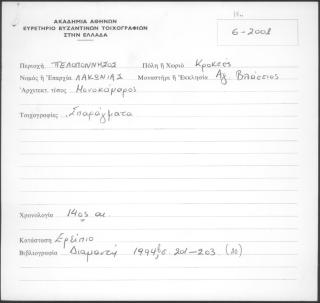 ΑΚΑΔΗΜΙΑ ΑΘΗΝΩΝ
ΕΥΡΕΤΗΡΙΟ ΒΥΖΑΝΤΙΝΩΝ ΤΟΙΧΟΓΡΑΦΙΩΝ
ΣΤΗΝ ΕΛΛΑΔΑ
6-2008
Περιοχή ΠΕΛΟΠΟΝΝΗΣΟΣ Πόλη ἤ Χωριό Κροκεές
Νομός ἤ Ἐπαρχία ΛΑΚΩΝΙΑΣ Μοναστήρι ἤ Ἐκκλησία Αγ. Βλάσιος
Ἀρχιτεκτ. τύπος Μονοκάμαρος
Τοιχογραφίες Σπαράγματα
Χρονολογία 14ος αι.
Κατάσταση Ερείπιο
Βιβλιογραφία Διαμαντή 1994 σ. 201-203 (20)